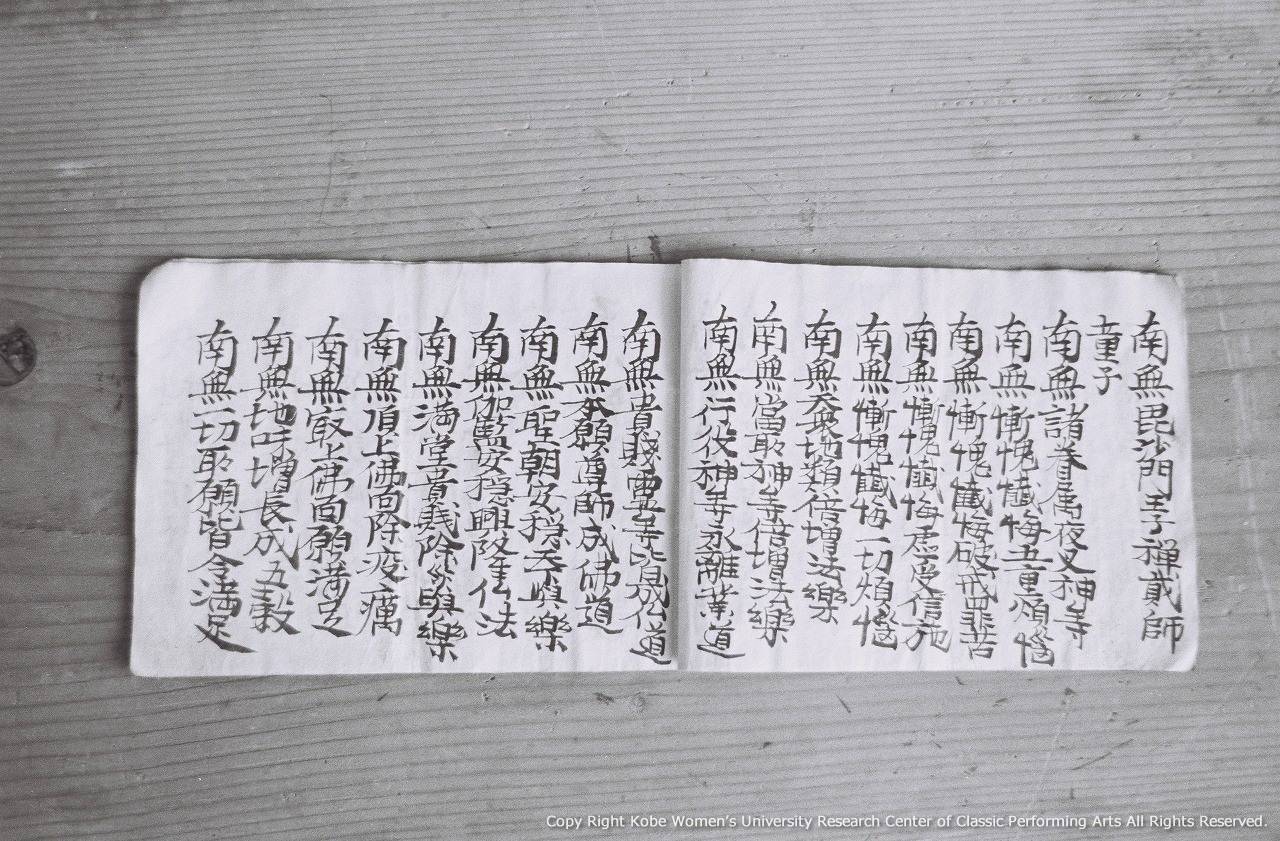 南無毘沙門王子禅貳師
童子
南無諸眷属夜叉神等
南無慚愧懴悔五重煩悩
南無慚愧懴悔破戒罪苦
南無慚愧懴悔虚受信施
南無慚愧懴悔一切煩悩
南無天衆地類倍増法樂
南無當所神等倍増法樂
南無行役神等永離業道
南無貴賤霊等皆成仏道
南無本願尊師成佛道
南無聖朝安穏天與樂
南無伽藍安穏興隆仏法
南無満堂貴賤除災與樂
南無頂上佛面除疫癘
南無㝡上佛面願満足
南無地味増長成五穀
南無一切所願皆令満足
Copy Right Kobe Women's University Research Center of Classic Performing Arts All Rights Reserved.